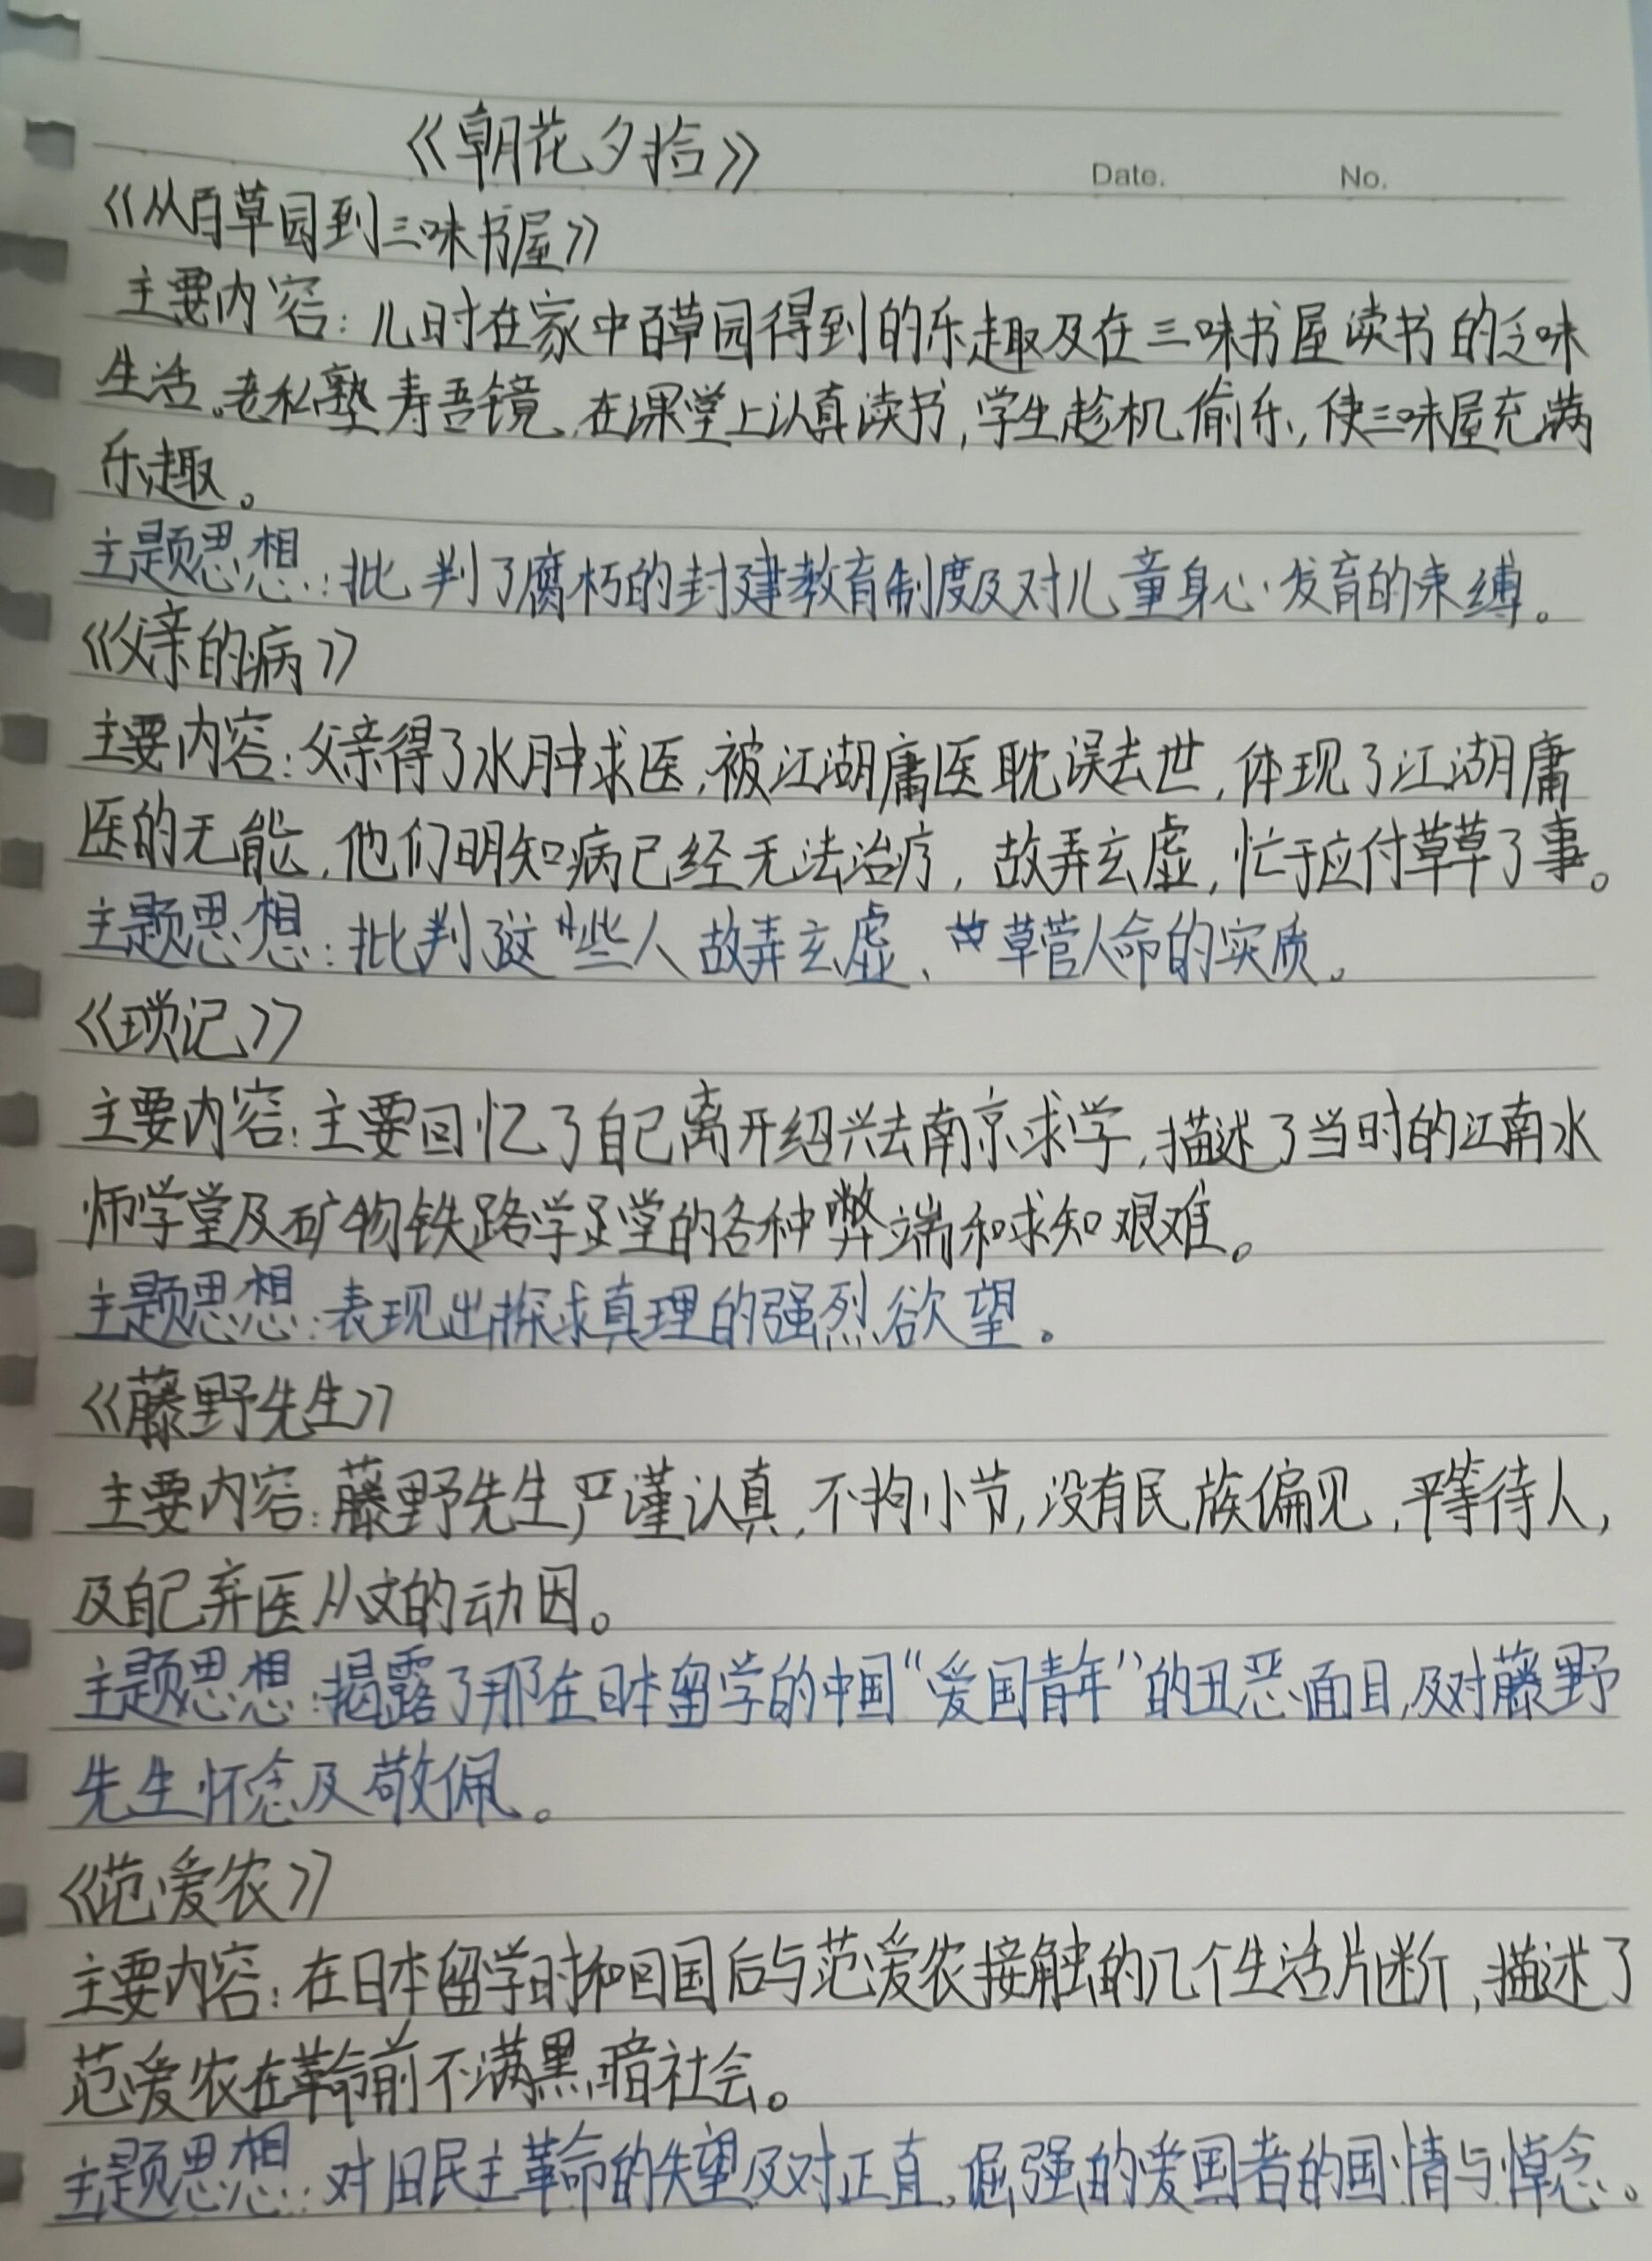 《朝花夕拾》
Date. No.
《从百草园到三味书屋》
主要内容：儿时在家中百草园得到的乐趣及在三味书屋读书的乏味
生活。老私塾寿吾镜，在课堂上认真读书，学生趁机偷乐，使三味屋充满
乐趣。
主题思想：批判了腐朽的封建教育制度及对儿童身心发育的束缚。
《父亲的病》
主要内容：父亲得了水肿求医，被江湖庸医耽误去世，体现了江湖庸
医的无能，他们明知病已经无法治疗，故弄玄虚，忙于应付草草了事。
主题思想：批判了这些人故弄玄虚、草菅人命的实质。
《琐记》
主要内容：主要回忆了自己离开绍兴去南京求学，描述了当时的江南水
师学堂及矿物铁路学堂的各种弊端和求知艰难。
主题思想：表现出探求真理的强烈欲望。
《藤野先生》
主要内容：藤野先生严谨认真，不拘小节，没有民族偏见，平等待人，
及自己弃医从文的动因。
主题思想：揭露了那在日本留学的中国“爱国青年”的丑恶面目，及对藤野
先生怀念及敬佩。
《范爱农》
主要内容：在日本留学时和回国后与范爱农接触的几个生活片断，描述了
范爱农在革命前不满黑暗社会。
主题思想：对旧民主革命的失望及对正直，倔强的爱国者的国情与悼念。